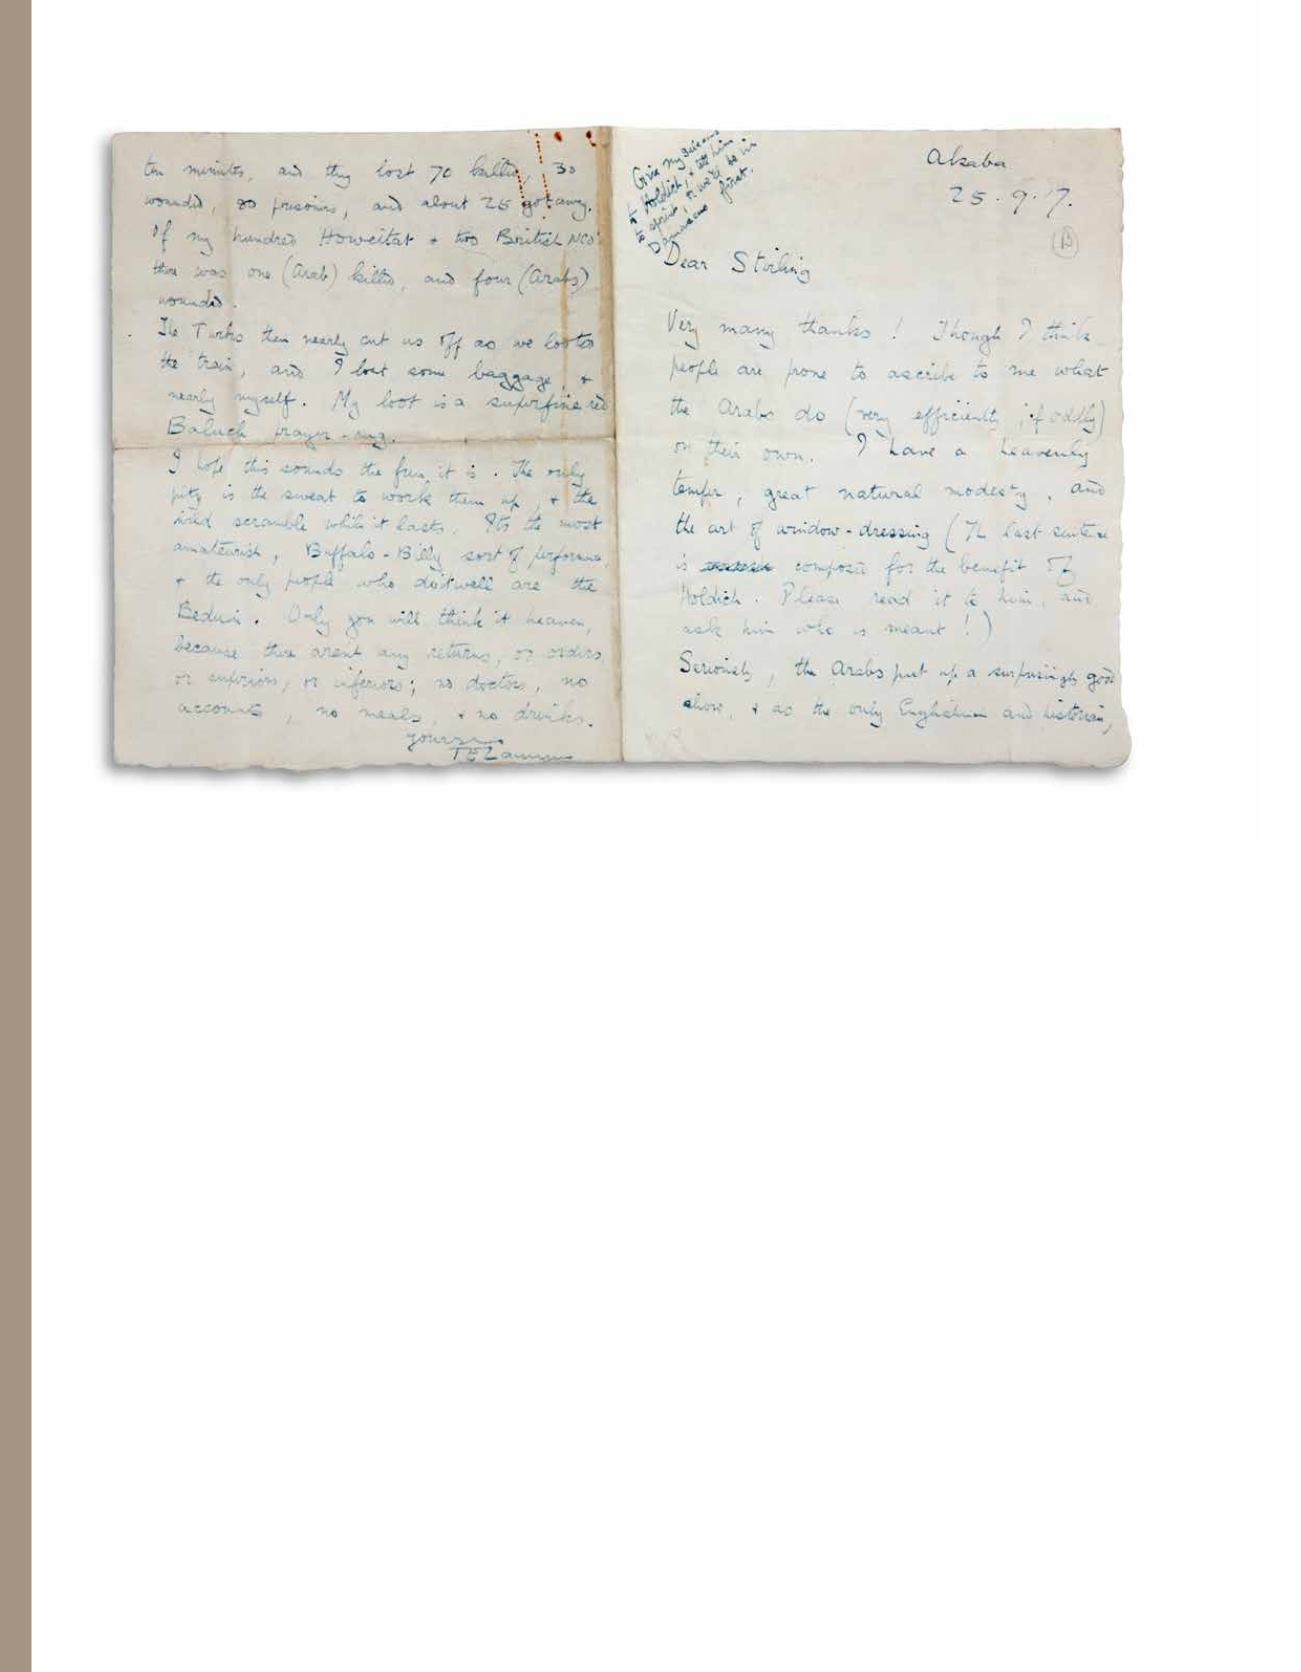 ten minutes, and they lost 70 killed, 30
wounded, 80 prisoners, and about 25 got away.
Of my hundred Howeitat + two British NCO's
there was one (Arab) killed, and four (Arabs)
wounded.
The Turks then nearly cut us off as we looted
the train, and I lost some baggage, +
nearly myself. My loot is a superfine red
Baluch prayer-rug.
I hope this sounds the fun it is. The only
pity is the sweat to work them up, + the
wild scramble while it lasts. Its the most
amateurish, Buffalo-Billy sort of performance,
+ the only people who do it well are the
Bedui. Only you will think it heaven,
because there arent any returns, or orders,
or superiors, or inferiors; no doctors, no
accounts, no meals, + no drinks.
yours
TELawrence
Give my salaams
to Holdich, + tell him
to sprint, or we'll be in
Damascus first.
Akaba
25.9.17.
Dear Stirling
Very many thanks! Though I think
people are prone to ascribe to me what
the Arabs do (very efficiently, if oddly)
on their own. I have a heavenly
temper, great natural modesty, and
the art of window-dressing (The last sentence
is composed for the benefit of
Holdich. Please read it to him, and
ask him who is meant!)
Seriously, the Arabs put up a surprisingly good
show, + as the only Englishman and historian,